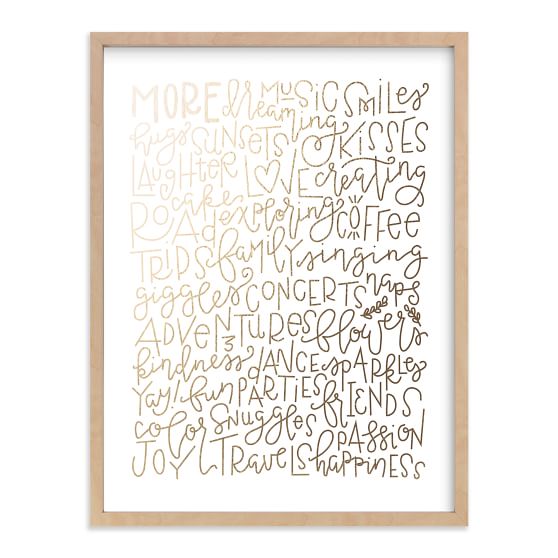 MORE dreaming MUSIC SMILES
hugs SUNSETS & KISSES
LAUGHTER LOVE creating
cake
ROAD exploring COFFEE
TRIPS family singing
giggles CONCERTS naps
ADVENTURES flowers
kindness DANCE SPARKLES
YAY! fun PARTIES friENDS
color SNUGGLES PASSION
JOY TRAVELS happiness